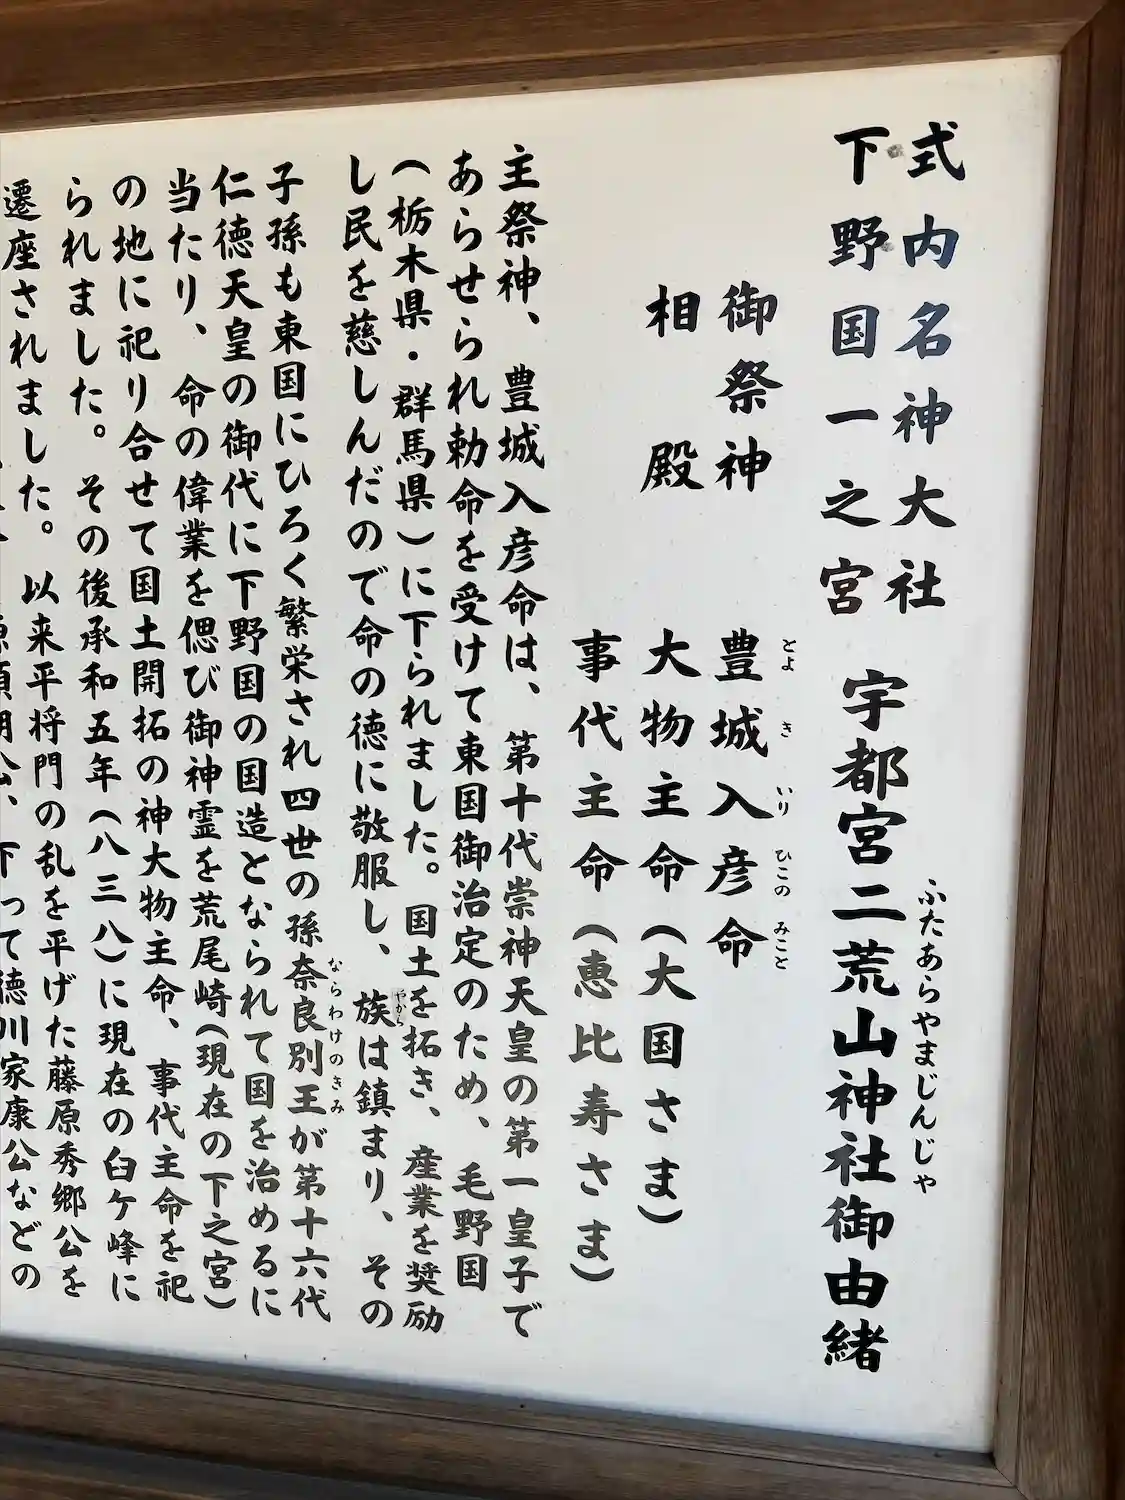 式内名神大社
下野国一之宮
宇都宮二荒山神社御由緒
ふたあらやまじんじゃ
御祭神 豊城入彦命
とよ き いり ひこの みこと
相殿 大物主命(大国さま)
事代主命(恵比寿さま)
主祭神、豊城入彦命は、第十代崇神天皇の第一皇子で
あらせられ勅命を受けて東国御治定のため、毛野国
(栃木県・群馬県)に下られました。国土を拓き、産業を奨励
し民を慈しんだので命の徳に敬服し、族は鎮まり、その
やから
子孫も東国にひろく繁栄され四世の孫奈良別王が第十六代
ならわけのきみ
仁徳天皇の御代に下野国の国造となられて国を治めるに
当たり、命の偉業を偲び御神霊を荒尾崎(現在の下之宮)
の地に祀り合せて国土開拓の神大物主命、事代主命を祀
られました。その後承和五年(八三八)に現在の臼ケ峰に
遷座されました。以来平将門の乱を平げた藤原秀郷公を
頼朝公、下って徳川家康公などの